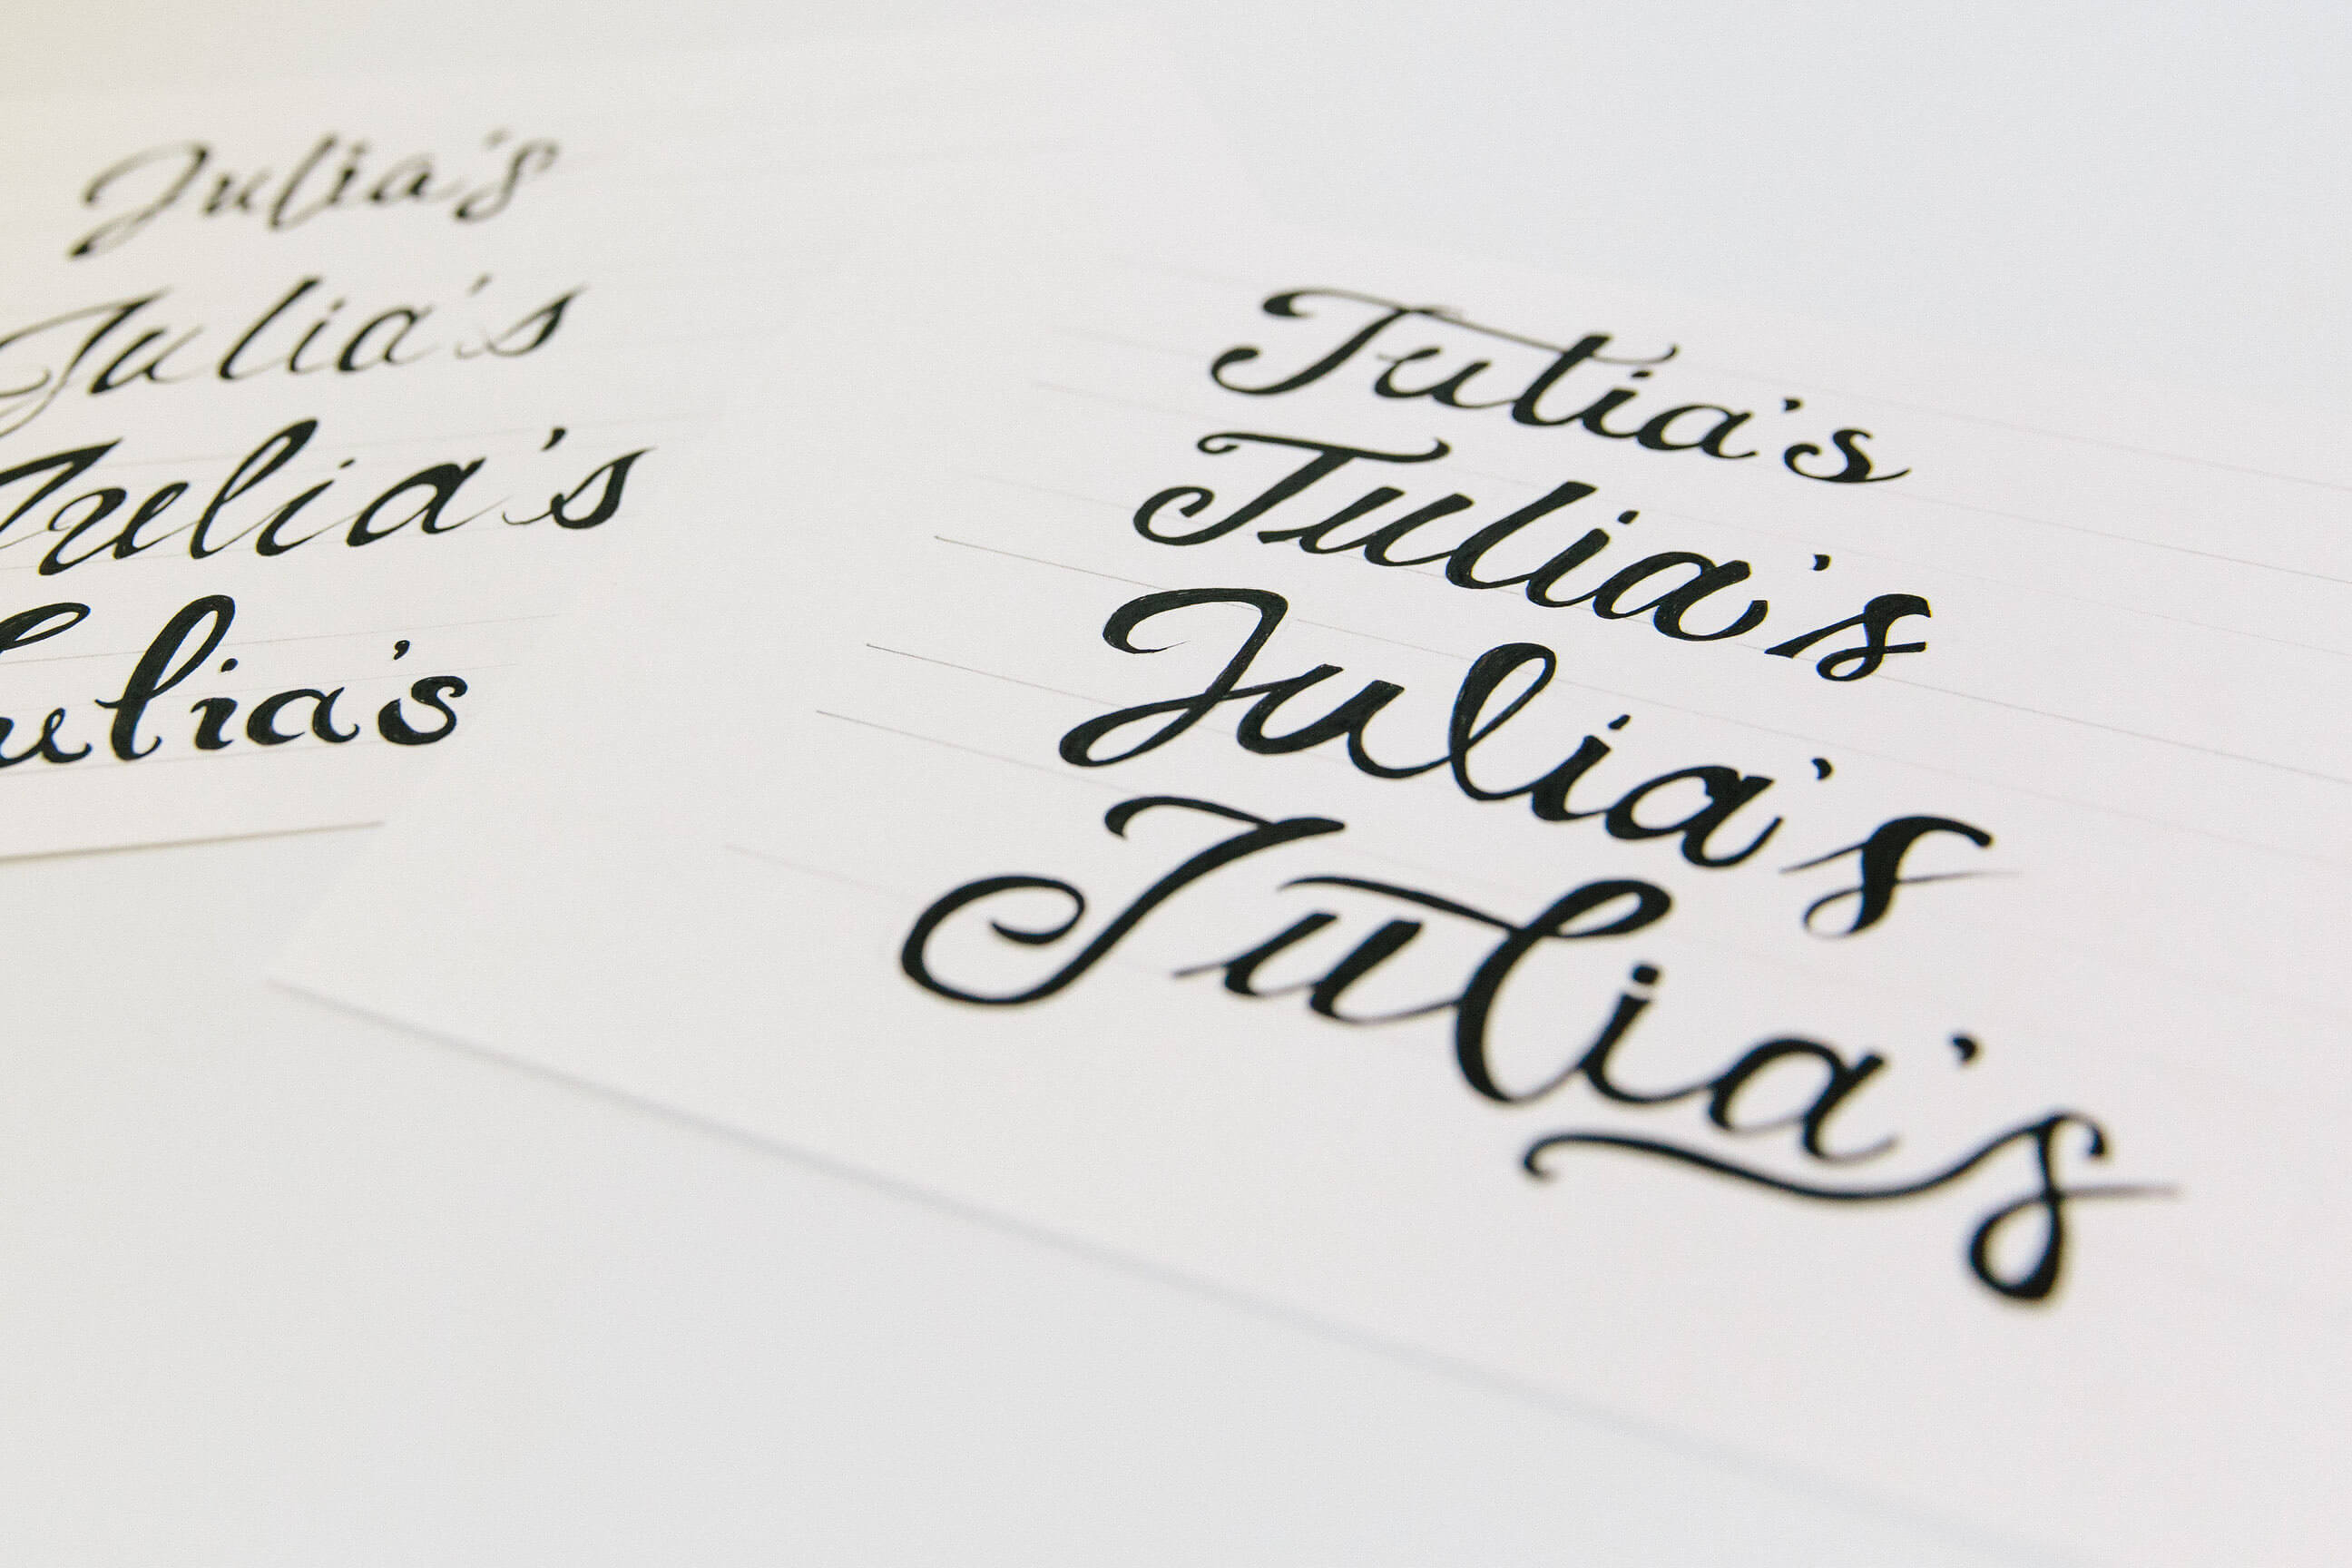 Julia's
Julia's
Julia's
ulia's
Julia's
Julia's
Julia's
Julia's